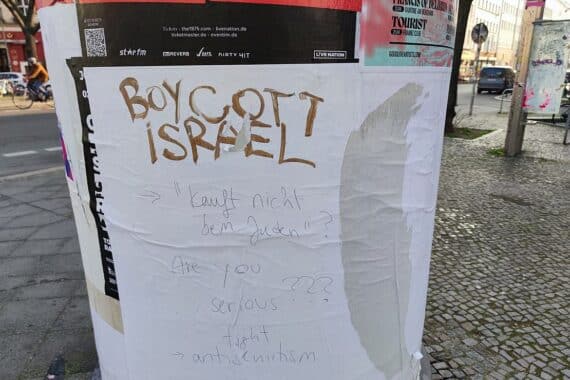 Tickets: the1975.com · livenation.de
ticketmaster.de · eventim.de
starfm
LIVE NATION
TOURIST
BOYCOTT
ISRAEL
→ "Kauft nicht
beim Juden"?
Are you
serious ???
fight
→ antisemitism